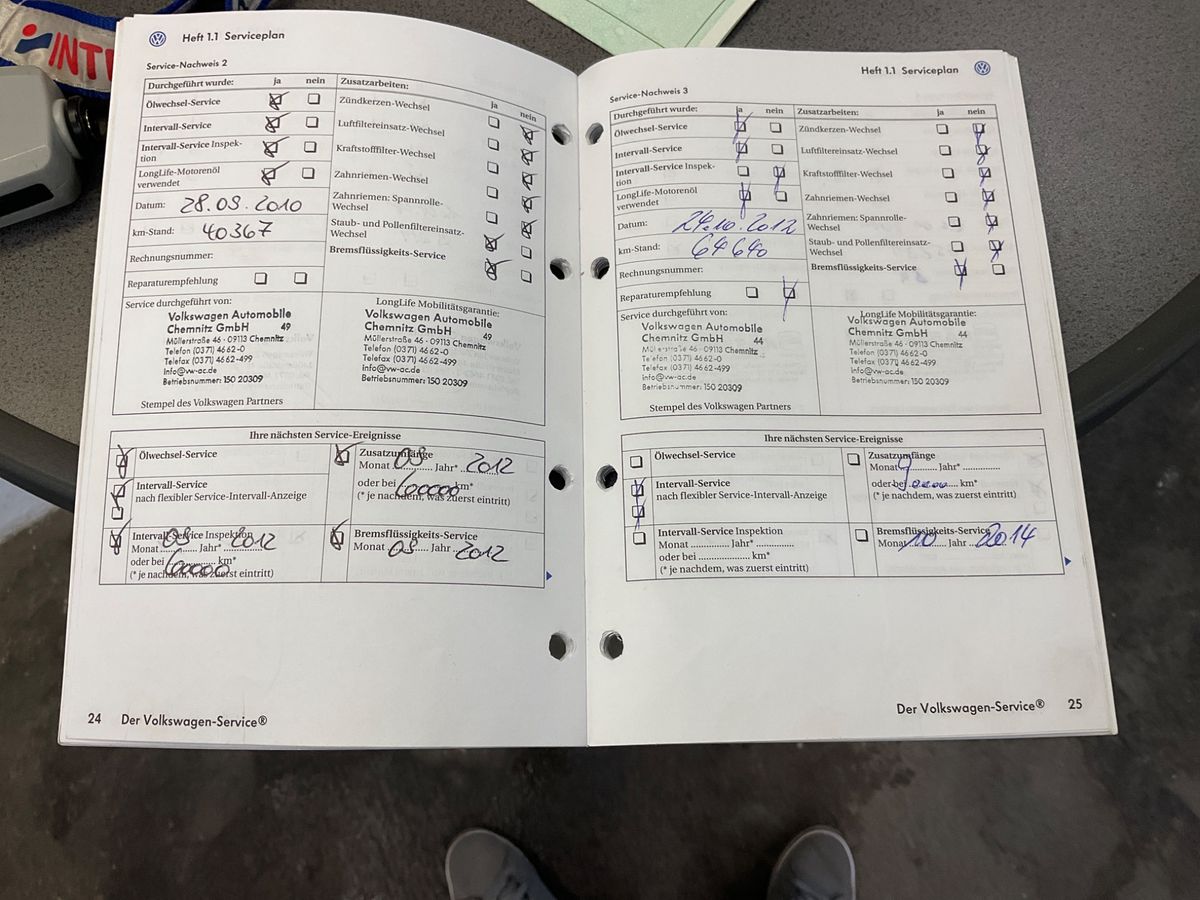 INT
Heft 1.1 Serviceplan
Service-Nachweis 2
Durchgeführt wurde: ja nein Zusatzarbeiten: ja nein
Ölwechsel-Service
Intervall-Service
Intervall-Service Inspek-
tion
LongLife-Motorenöl
verwendet
Datum: 28.09.2010
km-Stand: 40367
Rechnungsnummer:
Reparaturempfehlung
Zündkerzen-Wechsel
Luftfiltereinsatz-Wechsel
Kraftstofffilter-Wechsel
Zahnriemen-Wechsel
Zahnriemen: Spannrolle-
Wechsel
Staub- und Pollenfiltereinsatz-
Wechsel
Bremsflüssigkeits-Service
Service durchgeführt von:
Volkswagen Automobile
Chemnitz GmbH 49
Müllerstraße 46 · 09113 Chemnitz
Telefon (0371) 4662-0
Telefax (0371) 4662-499
info@vw-ac.de
Betriebsnummer: 150 20309
Stempel des Volkswagen Partners
LongLife Mobilitätsgarantie:
Volkswagen Automobile
Chemnitz GmbH 49
Müllerstraße 46 · 09113 Chemnitz
Telefon (0371) 4662-0
Telefax (0371) 4662-499
info@vw-ac.de
Betriebsnummer: 150 20309
Ihre nächsten Service-Ereignisse
Ölwechsel-Service
Intervall-Service
nach flexibler Service-Intervall-Anzeige
Intervall-Service Inspektion
Monat 09 Jahr* 2012
oder bei 60000 km*
(* je nachdem, was zuerst eintritt)
Zusatzumfänge
Monat 09 Jahr* 2012
oder bei 60000 km*
(* je nachdem, was zuerst eintritt)
Bremsflüssigkeits-Service
Monat 09 Jahr 2012
24 Der Volkswagen-Service®
Heft 1.1 Serviceplan
Service-Nachweis 3
Durchgeführt wurde: ja nein Zusatzarbeiten: ja nein
Ölwechsel-Service
Intervall-Service
Intervall-Service Inspek-
tion
LongLife-Motorenöl
verwendet
Datum: 24.10.2012
km-Stand: 64640
Rechnungsnummer:
Reparaturempfehlung
Zündkerzen-Wechsel
Luftfiltereinsatz-Wechsel
Kraftstofffilter-Wechsel
Zahnriemen-Wechsel
Zahnriemen: Spannrolle-
Wechsel
Staub- und Pollenfiltereinsatz-
Wechsel
Bremsflüssigkeits-Service
Service durchgeführt von:
Volkswagen Automobile
Chemnitz GmbH 44
Müllerstraße 46 · 09113 Chemnitz
Telefon (0371) 4662-0
Telefax (0371) 4662-499
info@vw-ac.de
Betriebsnummer: 150 20309
Stempel des Volkswagen Partners
LongLife Mobilitätsgarantie:
Volkswagen Automobile
Chemnitz GmbH 44
Müllerstraße 46 · 09113 Chemnitz
Telefon (0371) 4662-0
Telefax (0371) 4662-499
info@vw-ac.de
Betriebsnummer: 150 20309
Ihre nächsten Service-Ereignisse
Ölwechsel-Service
Intervall-Service
nach flexibler Service-Intervall-Anzeige
Intervall-Service Inspektion
Monat Jahr*
oder bei km*
(* je nachdem, was zuerst eintritt)
Zusatzumfänge
Monat Jahr*
oder bei km*
(* je nachdem, was zuerst eintritt)
Bremsflüssigkeits-Service
Monat 10 Jahr 2014
Der Volkswagen-Service® 25